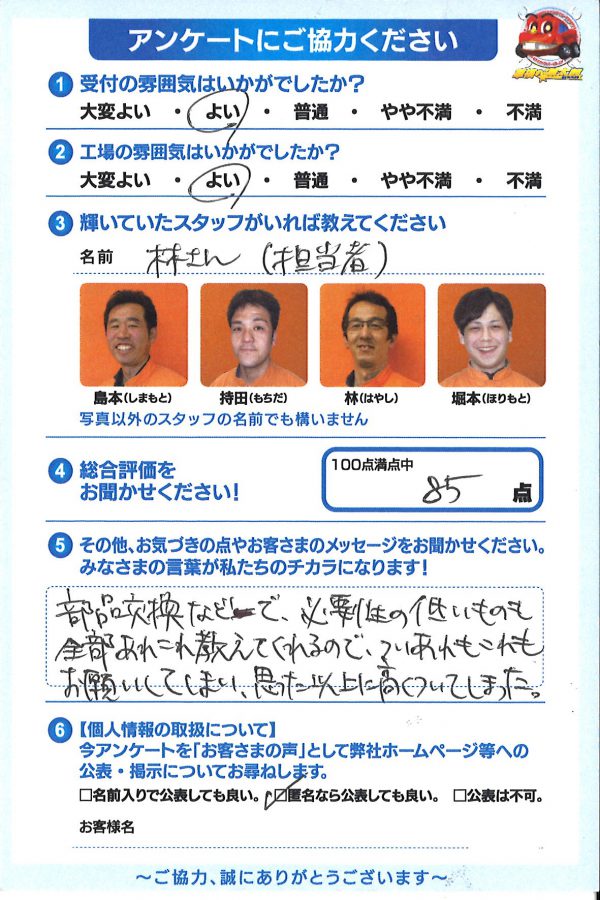 アンケートにご協力ください
1 受付の雰囲気はいかがでしたか?
大変よい ・ よい ・ 普通 ・ やや不満 ・ 不満
2 工場の雰囲気はいかがでしたか?
大変よい ・ よい ・ 普通 ・ やや不満 ・ 不満
3 輝いていたスタッフがいれば教えてください
名前 林さん (担当者)
島本(しまもと) 持田(もちだ) 林(はやし) 堀本(ほりもと)
写真以外のスタッフの名前でも構いません
4 総合評価を
お聞かせください!
100点満点中
85 点
5 その他、お気づきの点やお客さまのメッセージをお聞かせください。
みなさまの言葉が私たちのチカラになります!
部品交換などで、必要性の低いものも
全部あれこれ教えてくれるので、ついあれもこれも
お願いしてしまい、思った以上に高くついてしまった。
6 【個人情報の取扱について】
今アンケートを「お客さまの声」として弊社ホームページ等への
公表・掲示についてお尋ねします。
□名前入りで公表しても良い。 ☑匿名なら公表しても良い。 □公表は不可。
お客様名
～ご協力、誠にありがとうございます～